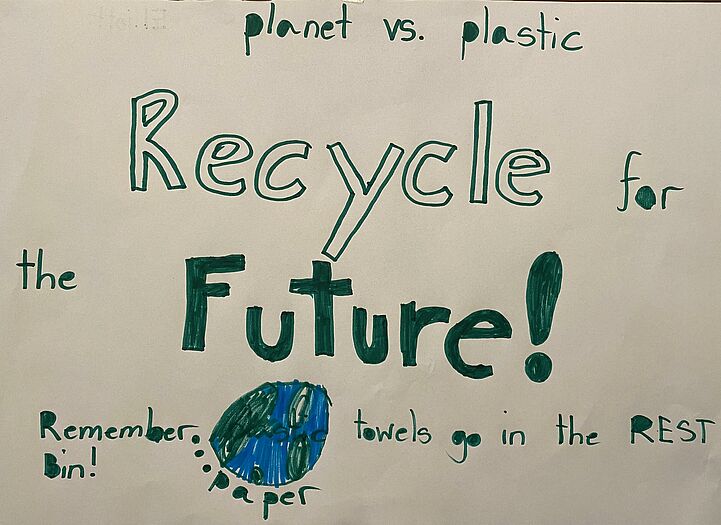 planet vs. plastic
Recycle for
the Future!
Remember... plastic towels go in the REST
Bin!
paper